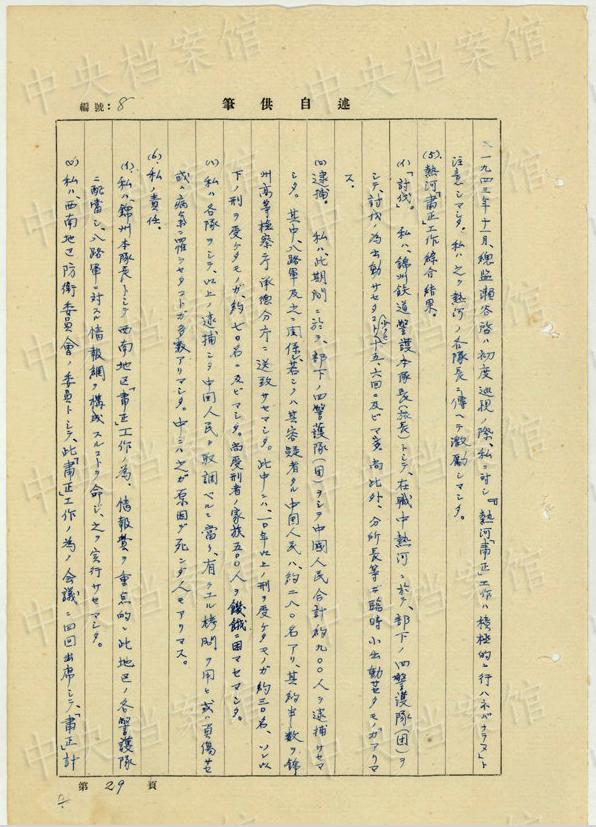 筆供自述
編號：8
一九四三年十一月、總監瀬谷啓ハ初度巡視ノ際、私ニ対シ『熱河「肅正」工作ハ積極的ニ行ハネバナラヌ』ト
注意シマシタ。私ハ之ヲ熱河ノ各隊長ニ傳ヘテ激励シマシタ。
(5).熱河「肅正」工作綜合結果。
(イ)「討伐」。私ハ、錦州鉄道警護本隊長(旅長)トシテ、在職中熱河ニ於テ、部下ノ四警護隊(団)ヲ
シテ、討伐ノ為出動サセタコト少クモ十五、六回ニ及ビマシタ。尚此外、分所長等ガ臨時小出動サセタモノガアリマ
ス。
(ロ)逮捕。 私ハ、此期間ニ於テ、部下ノ四警護隊(団)ヲシテ中國人民合計約九〇〇人ヲ逮捕サセマ
シタ。其中、八路軍及之ニ関係、若シクハ其容疑者タル中国人民ハ、約二八〇名アリ、其約半数ヲ錦
州高等檢察庁承徳分庁ニ送致サセマシタ。此中ニハ、一〇年以上ノ刑ヲ受ケタモノガ約三〇名、ソレ以
下ノ刑ヲ受ケタモノガ、約七〇名ニ及ビマシタ。尚受刑者ノ家族五〇〇人ヲ饑餓ニ困マセマシタ。
(ハ)私ハ、各隊ヲシテ、以上ノ逮捕シタ中国人民ヲ取調ベルニ当リ、有ラユル拷問ヲ用ヒ或ハ負傷サセ
或ハ病氣ニ罹ラセタコトガ多数アリマシタ。中ニハ之ガ原因デ死ンダ人モアリマス。
(6).私ノ責任。
(イ).私ハ、錦州本隊長トシテ西南地区「肅正」工作ノ為、情報費ヲ重点的ニ此地区ノ各警護隊
ニ配當シ、八路軍ニ対スル情報網ヲ構成スルコトヲ命ジ、之ヲ実行サセマシタ。
(ロ)私ハ、西南地区防衛委員會ノ委員トシテ、此「肅正」工作ノ為ノ会議ニ四回出席シテ、「肅正」計
第 29 頁
中央档案馆